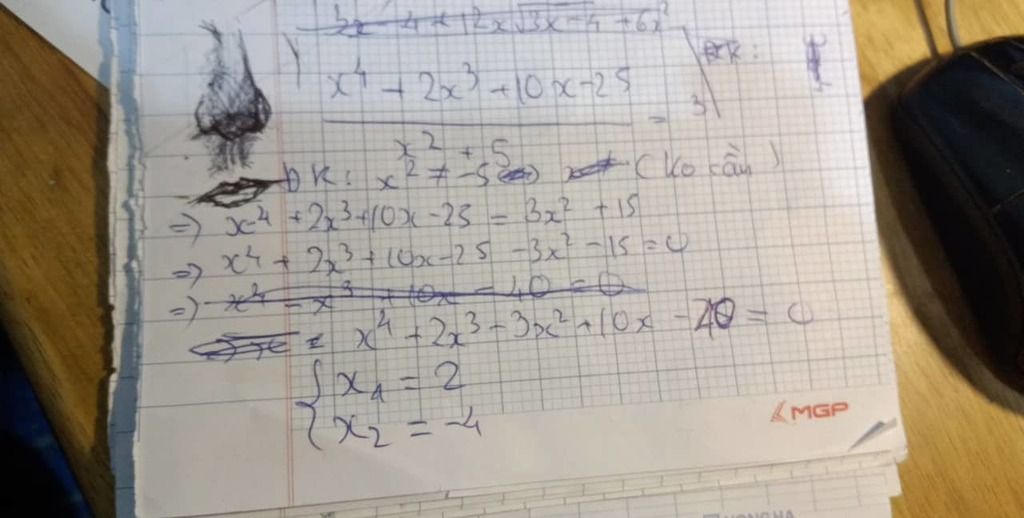 3x - 4 + 12x√3x-4 + 6x²
) x⁴ + 2x³ + 10x - 25 / x² + 5 = 3
ĐK: x² ≠ -5 (ko cần)
=> x⁴ + 2x³ + 10x - 25 = 3x² + 15
=> x⁴ + 2x³ + 10x - 25 - 3x² - 15 = 0
=> x⁴ - x³ + 10x - 40 = 0
= x⁴ + 2x³ - 3x² + 10x - 40 = 0
{ x₁ = 2
{ x₂ = -4
MGP